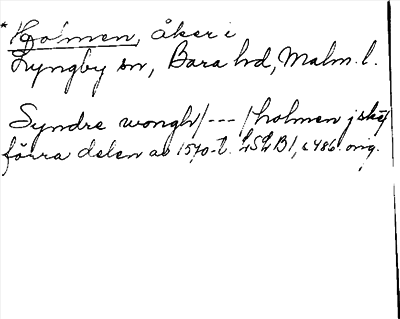 * Holmen, åker i
Lyngby sn, Bara hd, Malm. l.
Syndre wongh /---/ holmen j ské/
förra delen av 1570-t. LSLB1, c 486. orig.